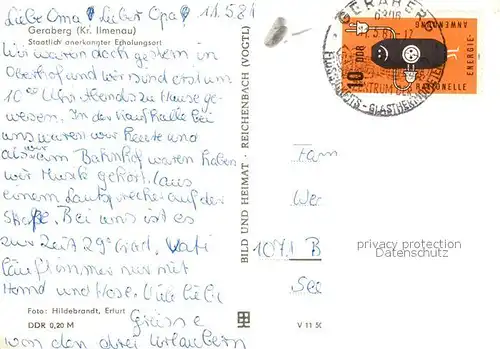 Liebe Oma! Lieber Opa! 11.5.81
Geraberg (Kr. Ilmenau)
Staatlich anerkannter Erholungsort
Wir waren doch gestern in
Oberhof und wir sind erst um
10 00 Uhr Abends zu Hause ge-
wesen. In der Kaufhalle bei
uns waren wir heute und
als wir am Bahnhof waren haben
wir Musik gehört (aus
einem Lautsprecher auf der
Straße. Bei uns ist es
zur Zeit 29° Grad. Vati
läuft immer nur mit
Hemd und Hose. Viele liebe
Foto: Hildebrandt, Erfurt
Grüsse
DDR 0,20 M
von den drei Urlaubern
BILD UND HEIMAT · REICHENBACH (VOGTL)
GERABERG
6306
ZENTRUM DER
10 DDR
RATIONELLE ENERGIE-
ANWENDUNG
Fam
We
1071 B
See
privacy protection
Datenschutz
V 11 50